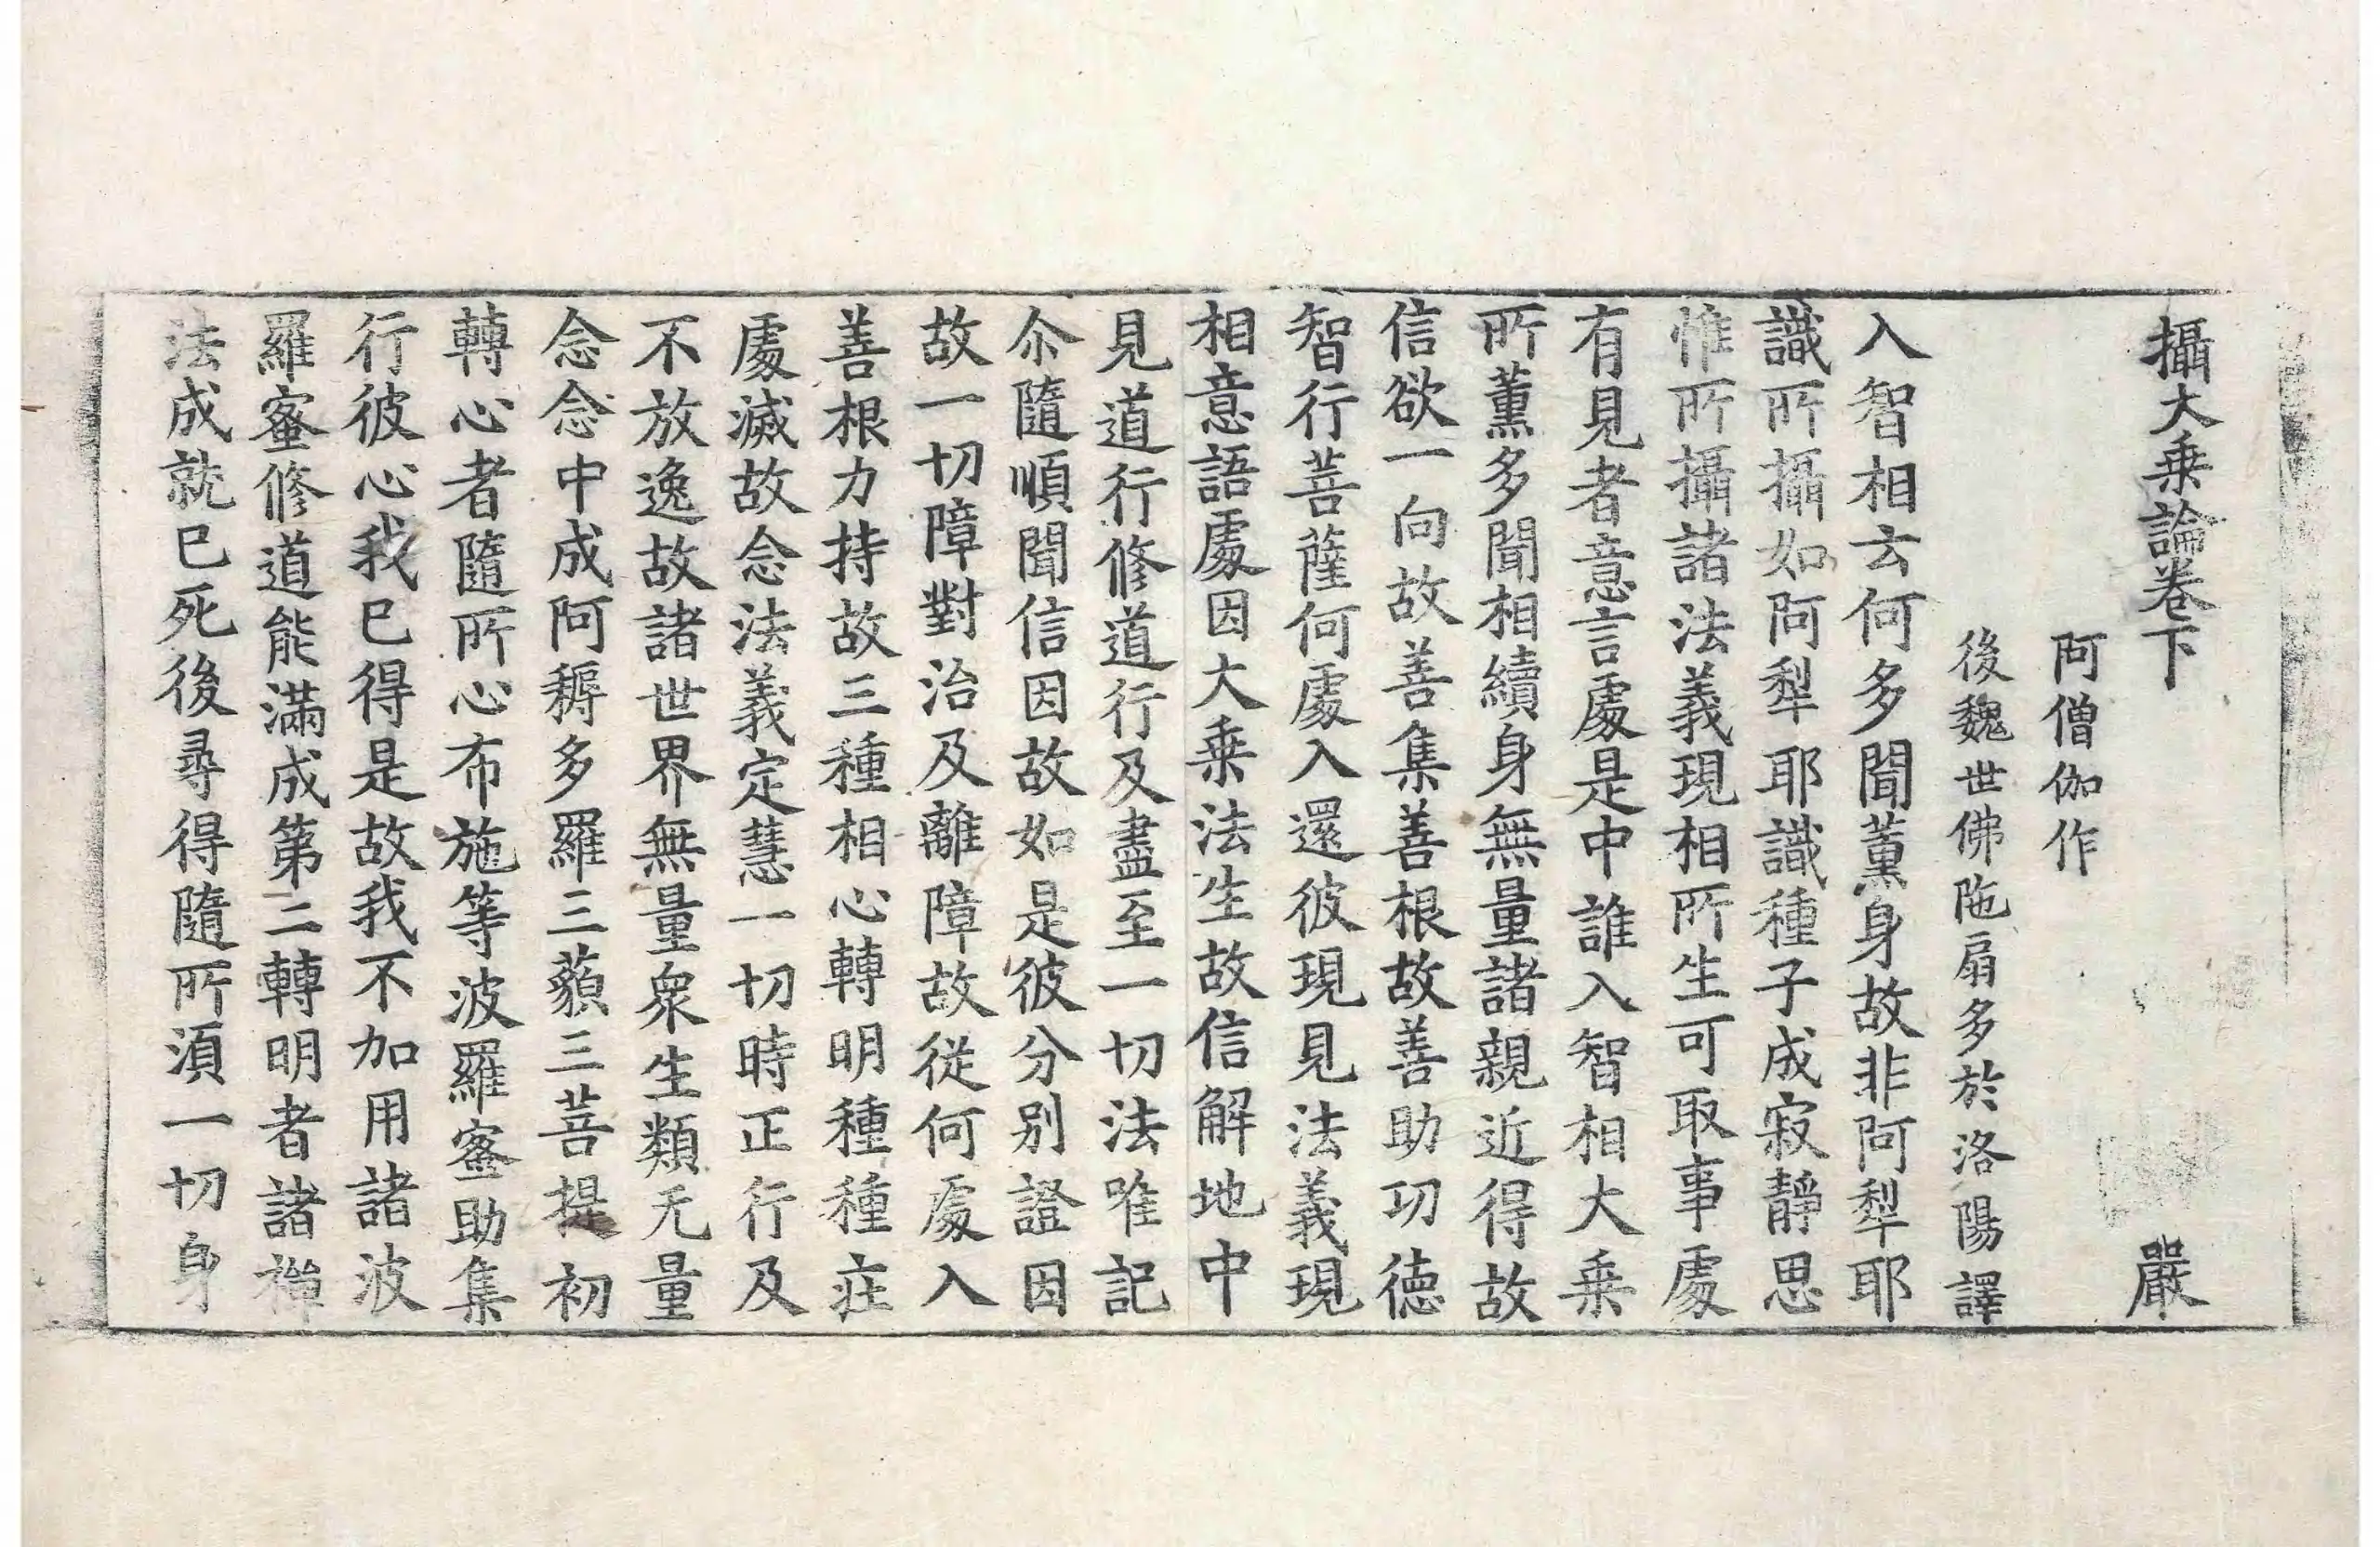 攝大乗論卷下 嚴
阿僧伽作
後魏世佛陁扇多於洛陽譯
入智相云何多聞薰身故非阿犁耶
識所攝如阿犁耶識種子成寂靜思
惟所攝諸法義現相所生可取事處
有見者意言處是中誰入智相大乗
所薰多聞相續身無量諸親近得故
信欲一向故善集善根故善助功德
智行菩薩何處入還彼現見法義現
相意語處因大乗法生故信解地中
見道行修道行及盡至一切法唯記
尒隨順聞信因故如是彼分別證因
故一切障對治及離障故從何處入
善根力持故三種相心轉明種種莊
處滅故念法義定慧一切時正行及
不放逸故諸世界無量衆生類无量
念念中成阿耨多羅三藐三菩提初
轉心者隨所心布施等波羅蜜助集
行彼心我已得是故我不加用諸波
羅蜜修道能滿成第二轉明者諸禅
法成就已死後尋得隨所湏一切身